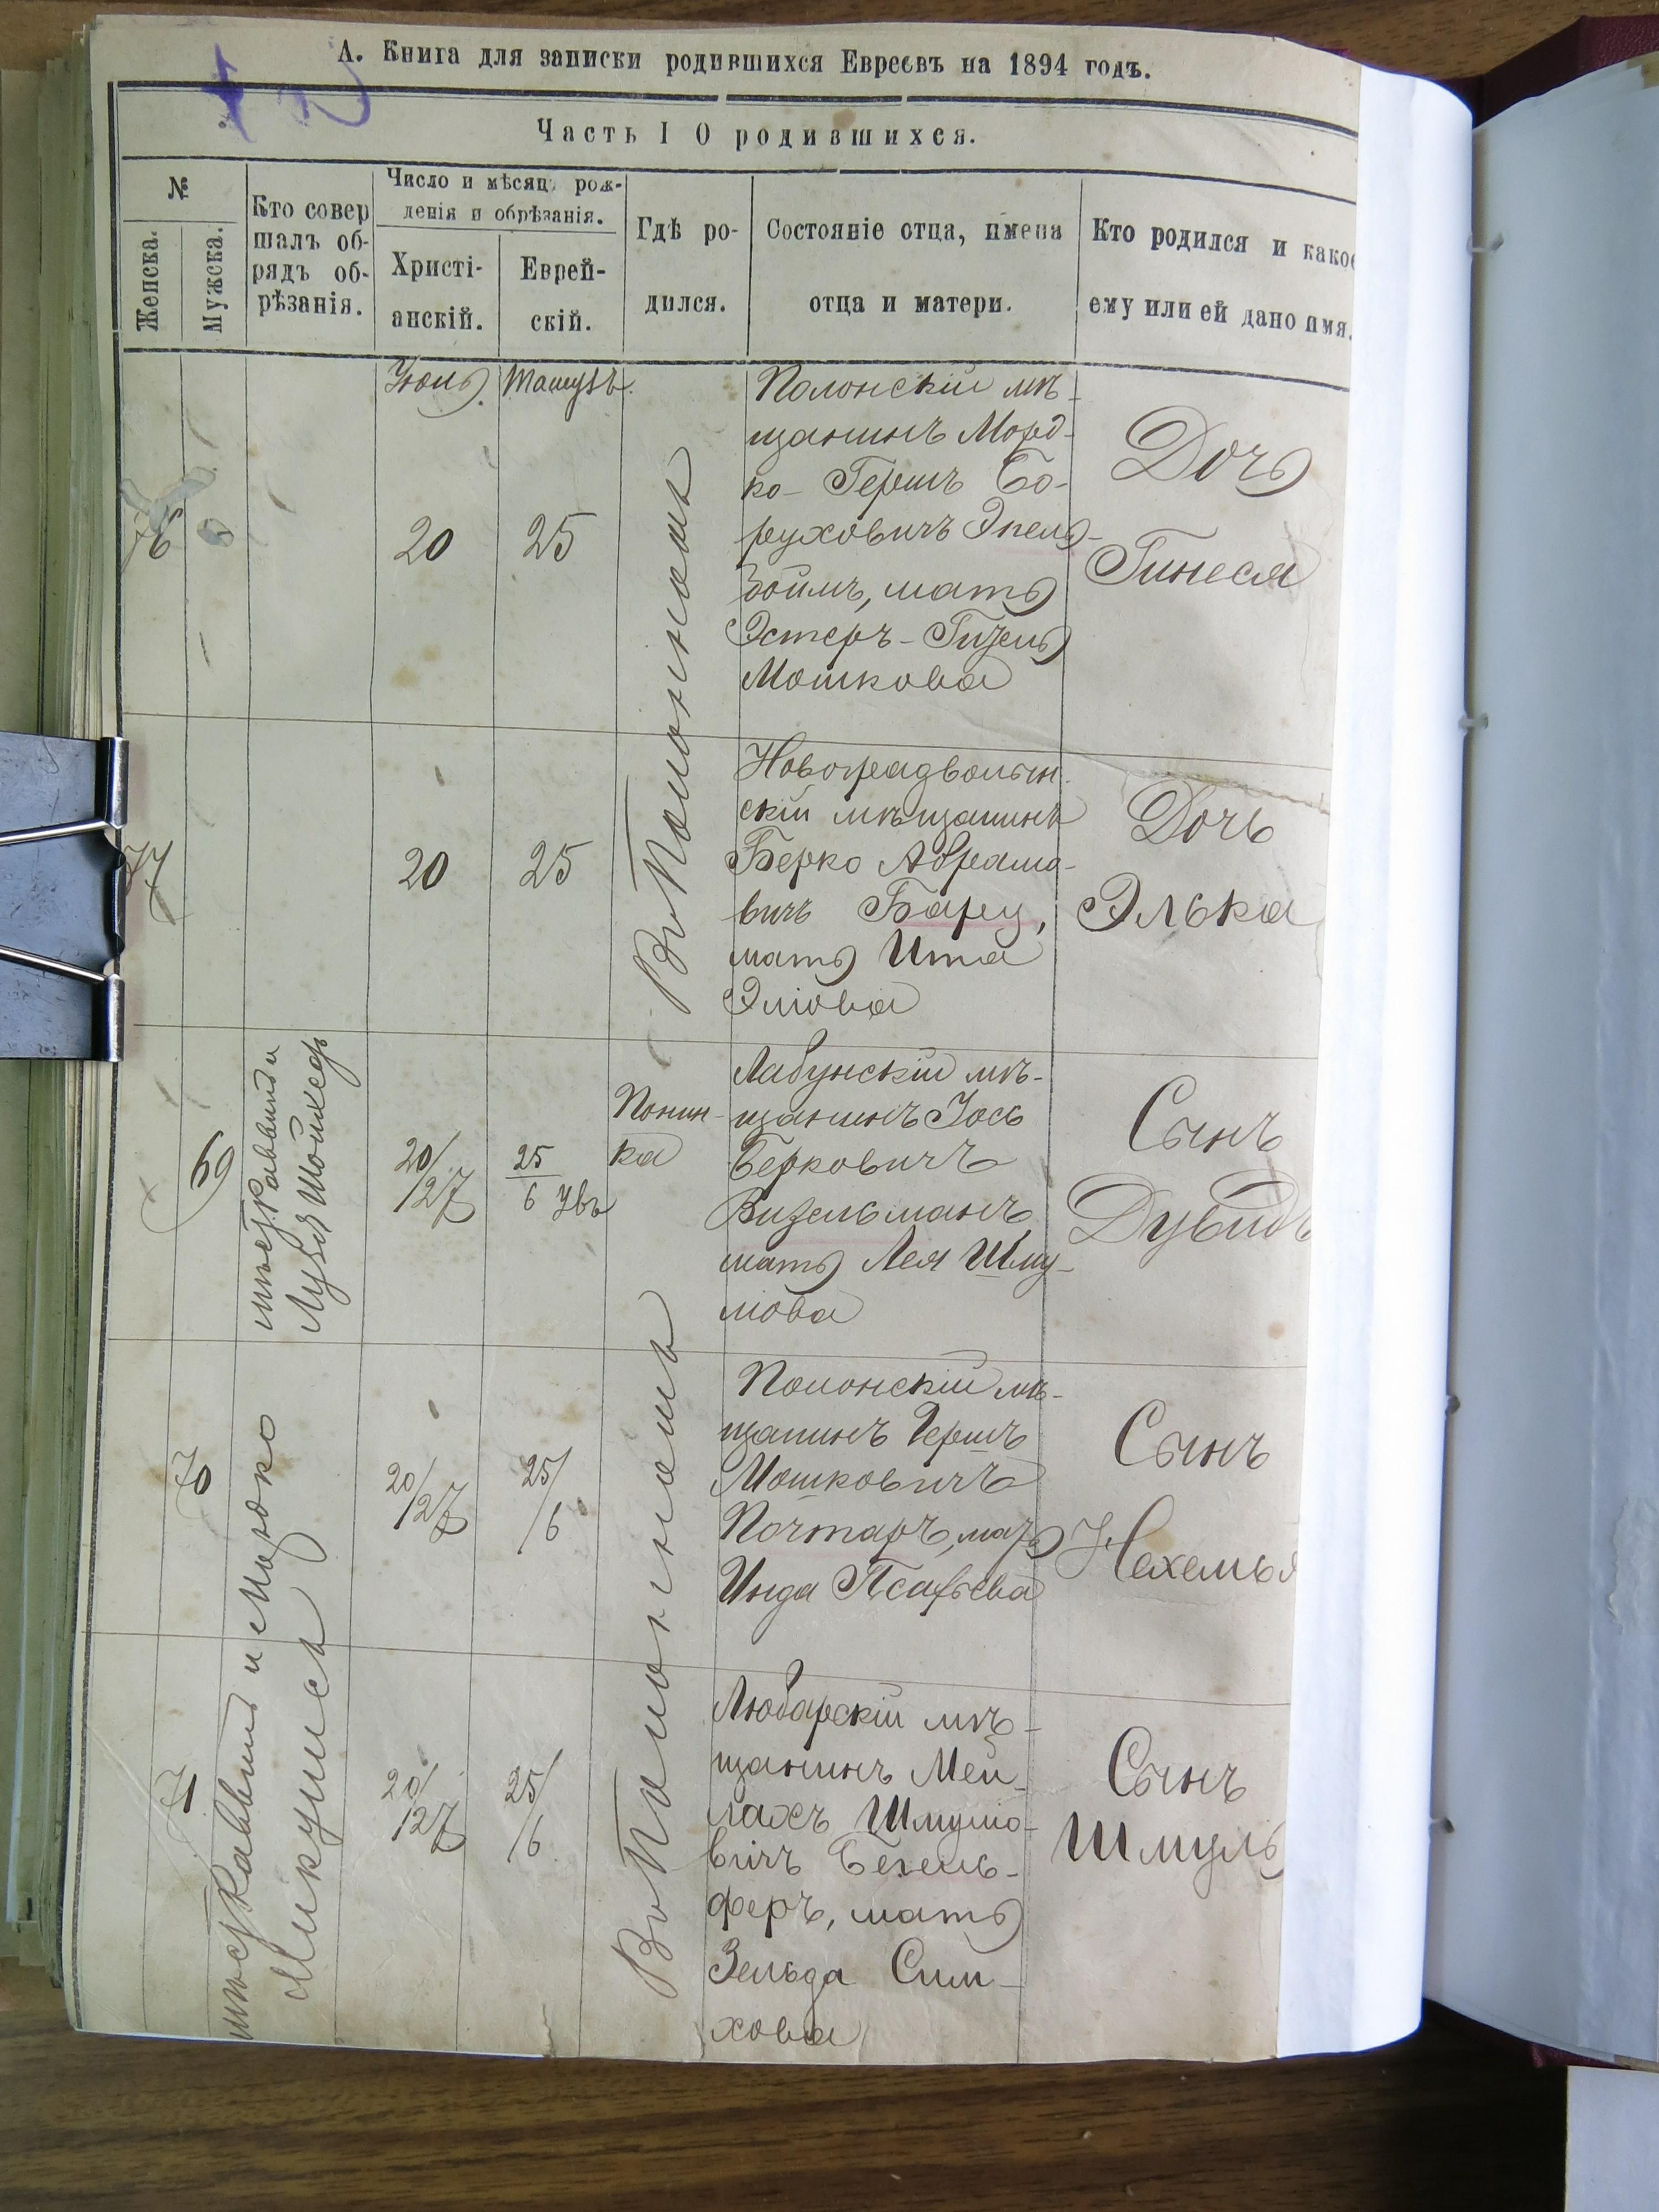 А. Книга для записки родившихся Евреевъ на 1894 годъ.
Часть I О родившихся.
№
Женска.
Мужска.
Кто совер
шалъ об-
рядъ об-
рѣзанія.
Число и мѣсяцъ рож-
денія и обрѣзанія.
Христі-
анскій.
Еврей-
скій.
Гдѣ ро-
дился.
Состояніе отца, имена
отца и матери.
Кто родился и какое
ему или ей дано имя.
Іюнь. Тамузъ.
76
20
25
Въ Полонномъ
Полонскій мѣ-
щанинъ Морд-
ко-Гершъ Бо-
руховичъ Эпель-
боймъ, мать
Эстеръ-Гизель
Мошкова
Дочь
Гинеся
77
20
25
Новоградволын-
скій мѣщанинъ
Берко Абрамо-
вичъ Барец,
мать Ита
Элiова
Дочь
Элька
69
Раввинъ и
Шойхеръ
20/27
25/6 Увъ
Понин-
ка
Лабунскій мѣ-
щанинъ Іось
Берковичъ
Визельманъ
мать Лея Шму-
лiова
Сынъ
Дувидъ
70
Раввинъ и Мошко
Микушисъ
20/27
25/6
Въ Полонномъ
Полонскій мѣ-
щанинъ Гершъ
Мошковичъ
Почтаръ, мать
Инда Псафьева
Сынъ
Нехемья
71
20/27
25/6
Любарскій мѣ-
щанинъ Мей-
лахъ Шмулiо-
вичъ Бегель-
феръ, мать
Зельда Сим-
хова
Сынъ
Шмуль